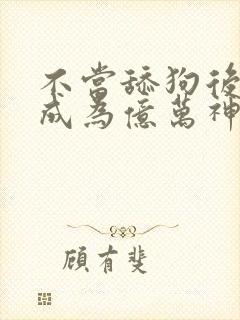 不當舔狗後
成為億萬神
顧有斐